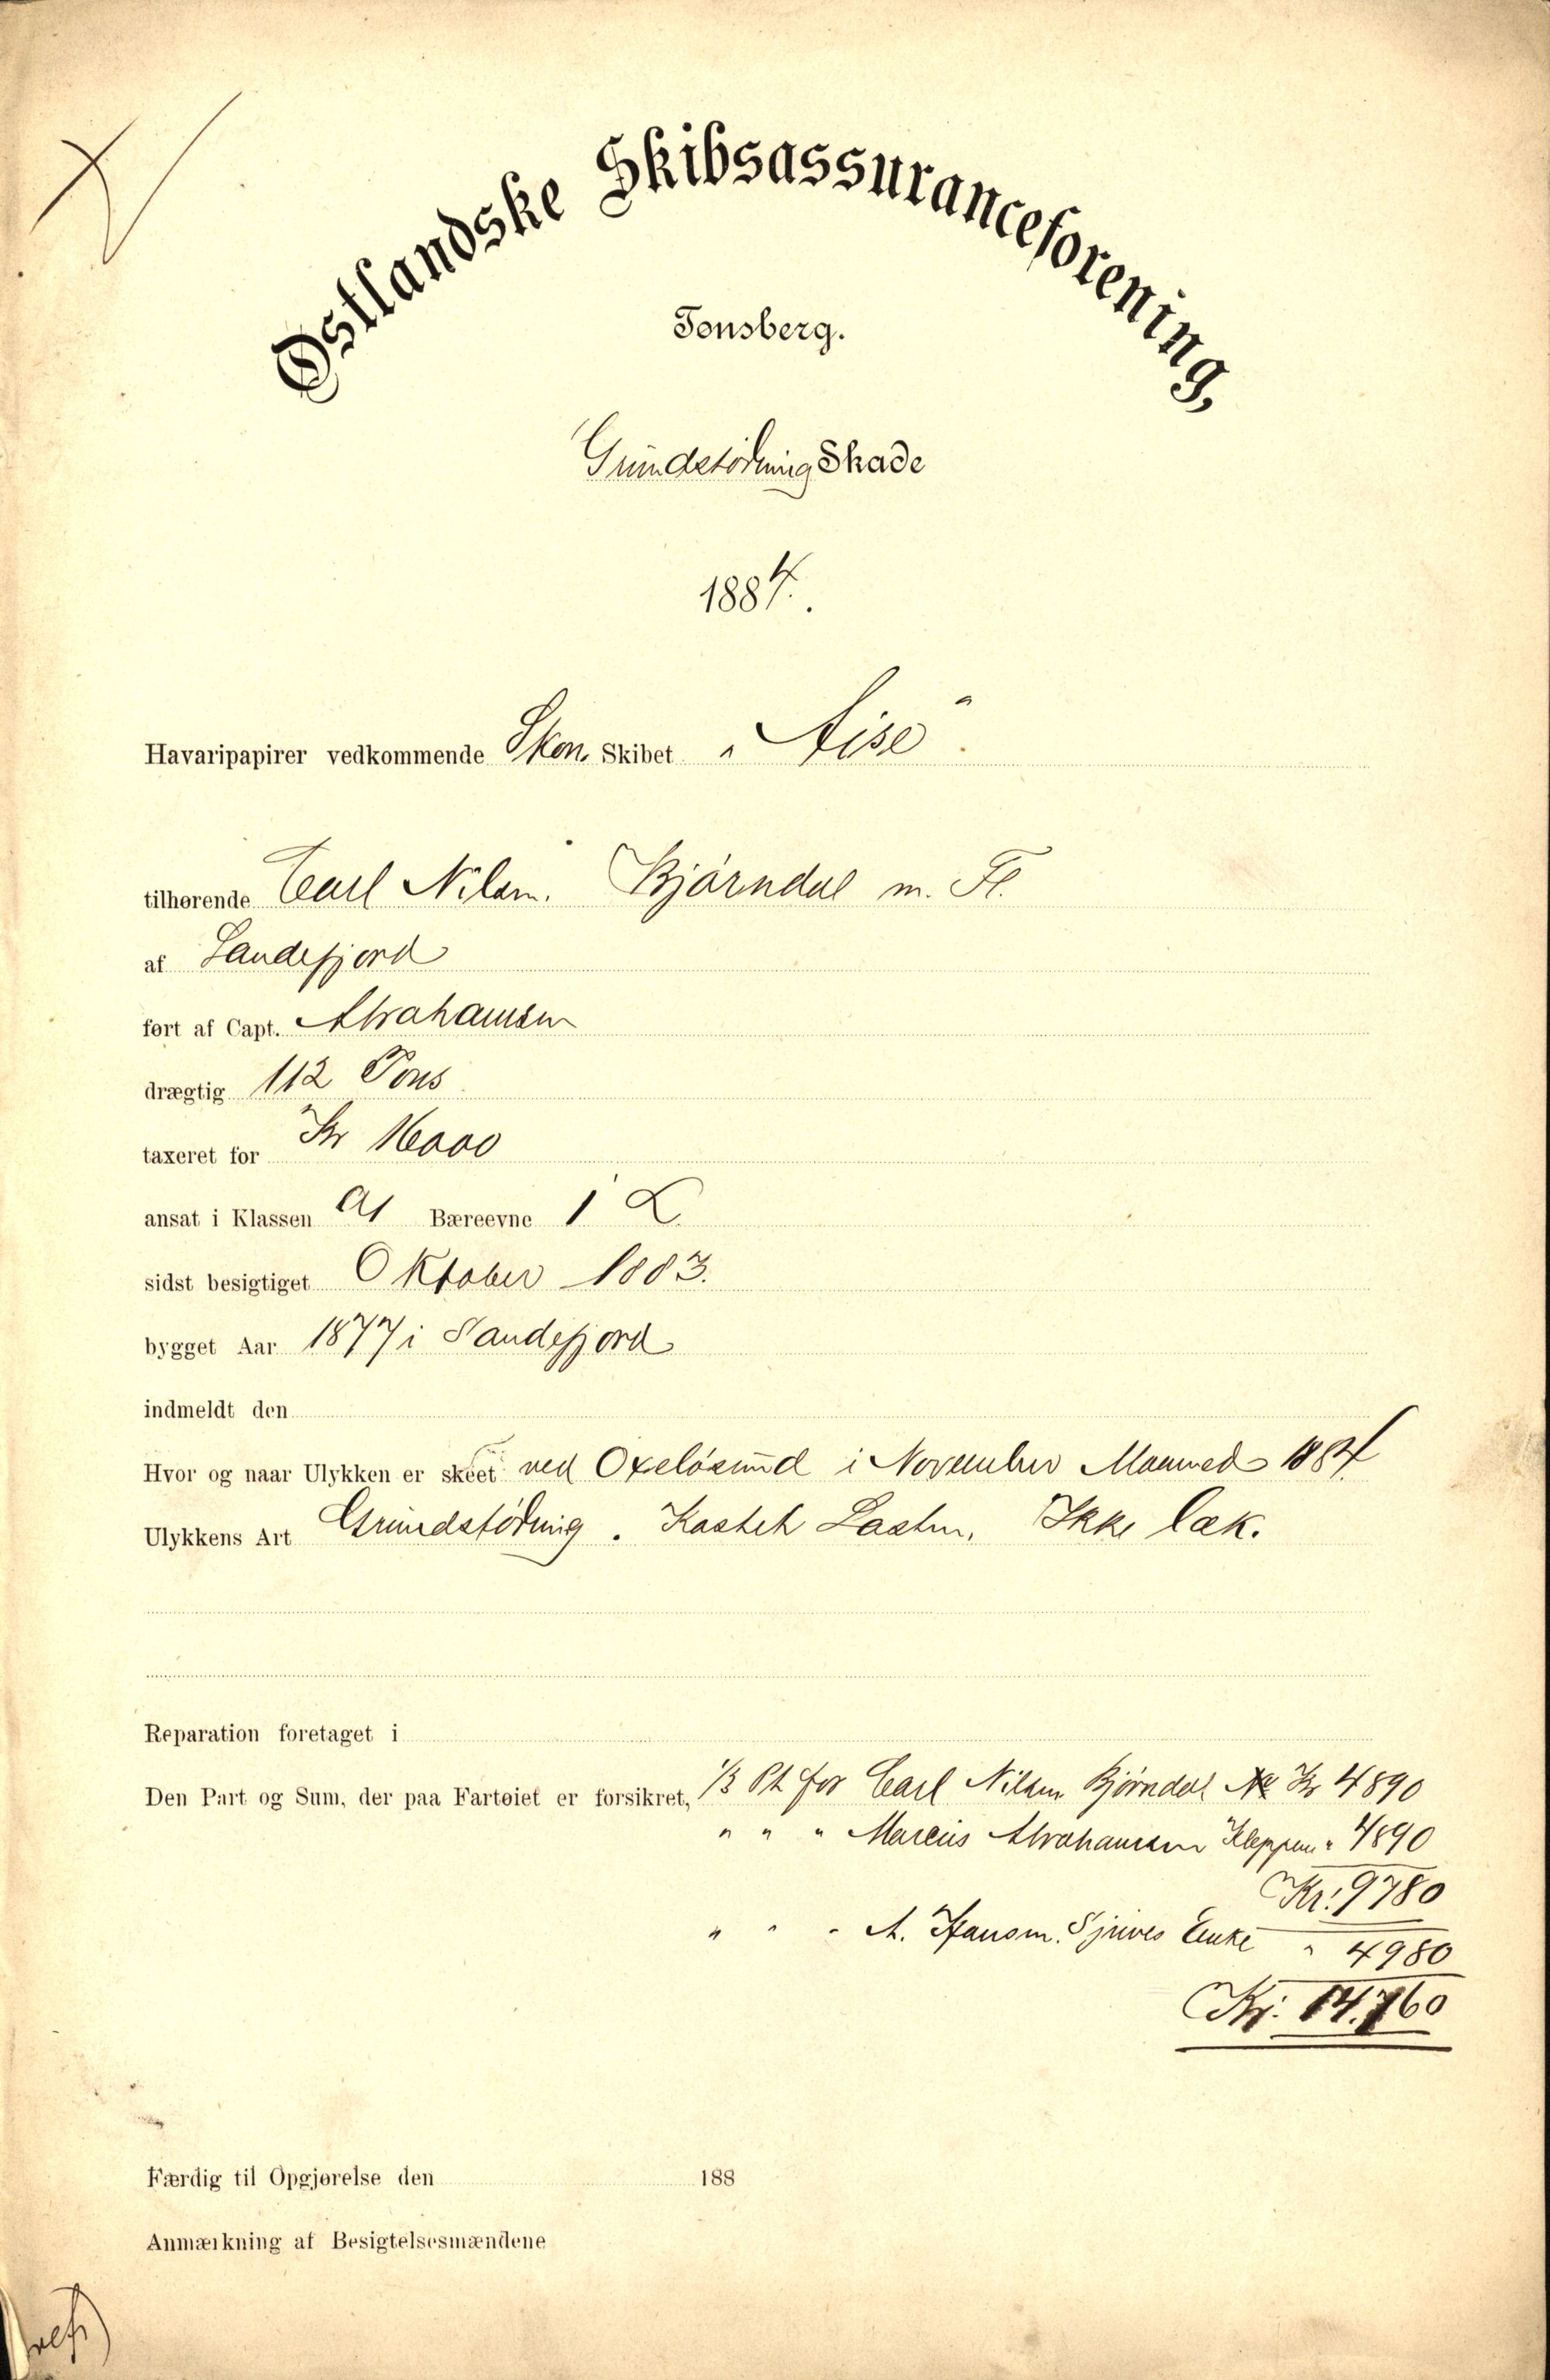 Østlandske Skibsassuranceforening,
Tønsberg.
Grundstødning Skade
1884.
Havaripapirer vedkommende Skon. Skibet „Aise“.
tilhørende Carl Nilsen. Bjørndal m. Fl.
af Sandefjord
ført af Capt. Abrahamsen
drægtig 112 Tons
taxeret for Kr 16000
ansat i Klassen A1 Bæreevne 1 L
sidst besigtiget Oktober 1883.
bygget Aar 1877 i Sandefjord
indmeldt den
Hvor og naar Ulykken er skeet ved Oxeløsund i November Maaned 1884
Ulykkens Art Grundstødning. Kastet Lasten. Ikke læk.
Reparation foretaget i
Den Part og Sum, der paa Fartøiet er forsikret, 1/3 Pt for Carl Nilsen Bjørndal Kr 4890
" " " Marcus Abrahamsen Kleppan " 4890
Kr: 9780
" " " A. Hansen. Enke " 4980
Kr. 14.760
Færdig til Opgjørelse den 188
Anmærkning af Besigtelsesmændene